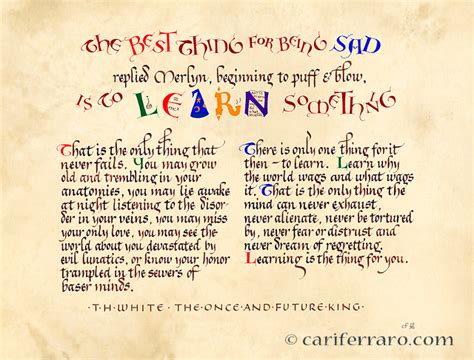 The BEST Thing for Being SAD
replied Merlyn, beginning to puff & blow,
is to LEARN something
That is the only thing that
never fails. You may grow
old and trembling in your
anatomies, you may lie awake
at night listening to the disor-
der in your veins, you may miss
your only love, you may see the
world about you devastated by
evil lunatics, or know your honor
trampled in the sewers of
baser minds.
There is only one thing for it
then – to learn. Learn why
the world wags and what wags
it. That is the only thing the
mind can never exhaust,
never alienate, never be tortured
by, never fear or distrust and
never dream of regretting.
Learning is the thing for you.
· T·H·WHITE · THE·ONCE·AND·FUTURE·KING ·
© cariferraro.com